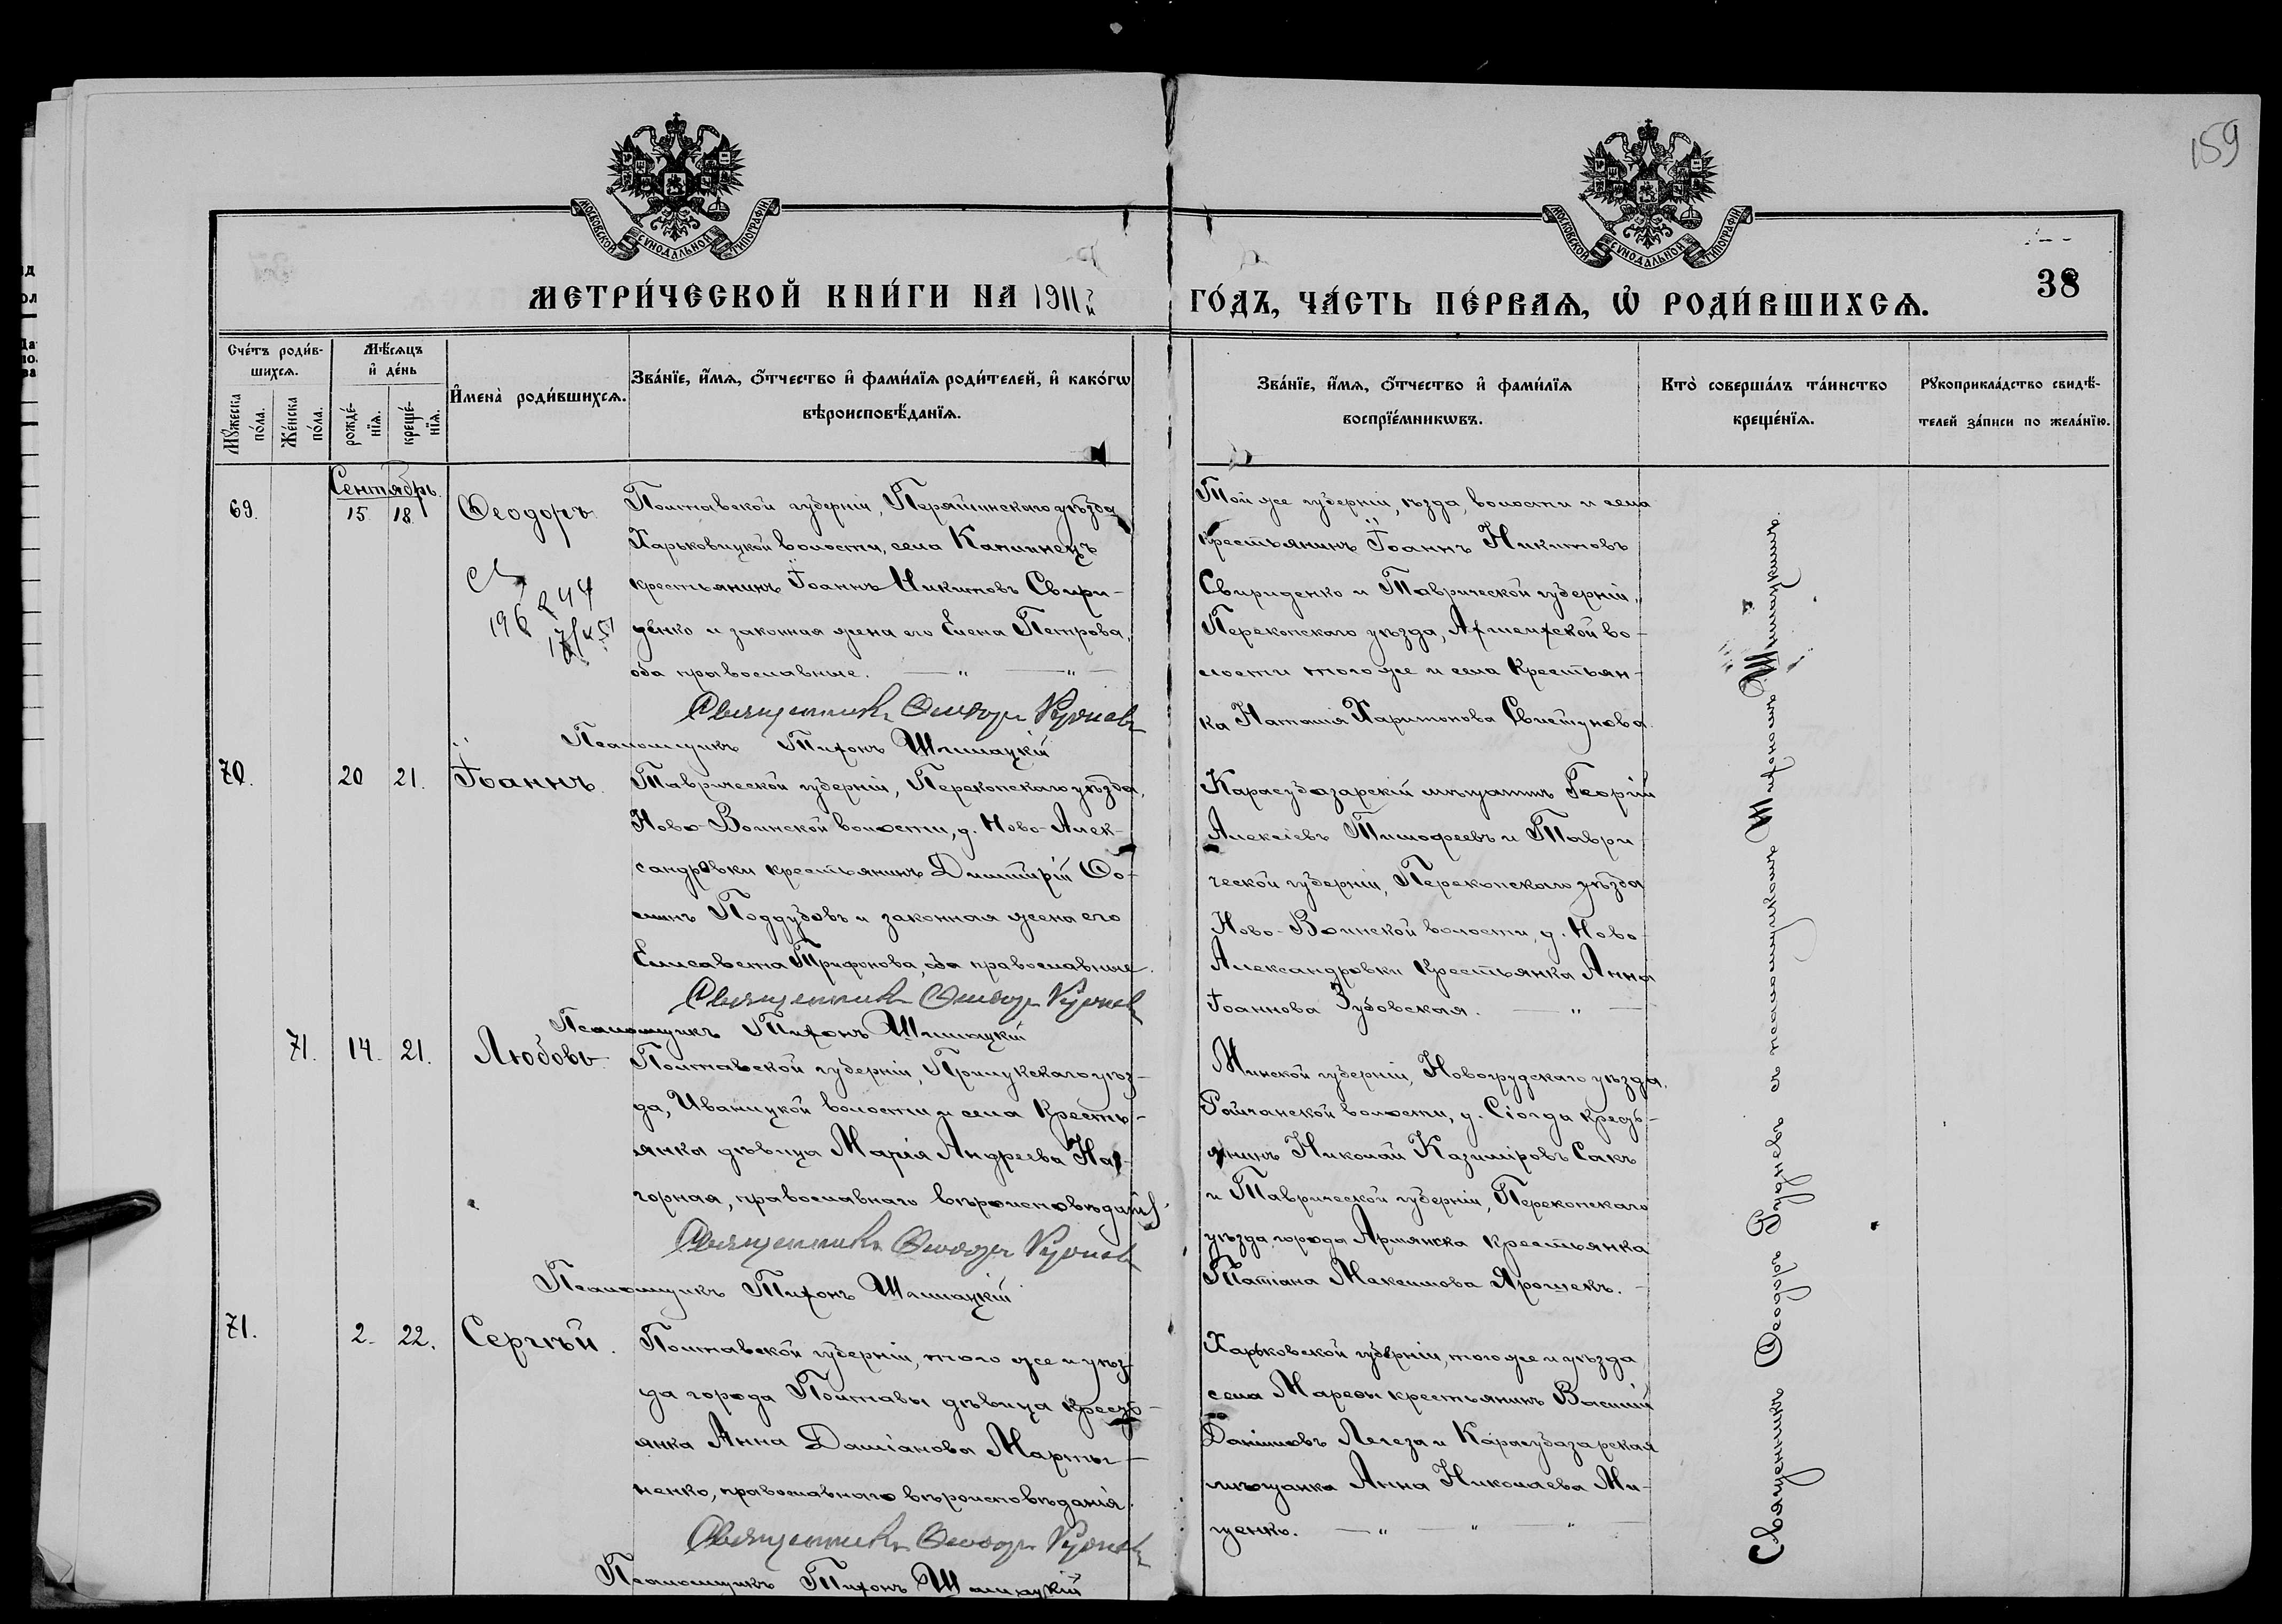 159
МОСКОВСКОЙ СУНОДАЛЬНОЙ ТИПОГРАФІИ
МОСКОВСКОЙ СУНОДАЛЬНОЙ ТИПОГРАФІИ
МЕТРИ́ЧЕСКОЙ КНИ́ГИ НА 1911й
ГО́ДЪ, ЧА́СТЬ ПЕ́РВАѦ, Ѡ҆ РОДИ́ВШИХСѦ.
38
Сче́тъ роди́в-
шихсѧ.
Мꙋ́жеска по́ла.
Же́нска по́ла.
Мѣ́сѧцъ
и҆ де́нь
рожде́-
нїѧ.
креще́-
нїѧ.
И҆мена̀ роди́вшихсѧ.
Зва́нїе, и҆́мѧ, ѻ҆́тчество и҆ фами́лїѧ роди́телей, и҆ како́гѡ
вѣроисповѣ́данїѧ.
Зва́нїе, и҆́мѧ, ѻ҆́тчество и҆ фами́лїѧ
воспрїе́мникѡвъ.
Кто̀ соверша́лъ та́инство
креще́нїѧ.
Рꙋкоприкла́дство свидѣ́-
телей за́писи по жела́нїю.
Сентябрь.
69.
15
18
Ѳеодоръ
196
244
Полтавской губерніи, Пирятинскаго уѣзда
Харьковицкой волости, села Каплинецъ
крестьянинъ Іоаннъ Никитовъ Свири-
денко и законная жена его Елена Петрова,
оба православные. — " — " —
Священникъ Ѳеодоръ Рудневъ
Псаломщикъ Тихонъ Шишацкій
Той же губерніи, уѣзда, волости и села
крестьянинъ Іоаннъ Никитовъ
Свириденко и Таврической губерніи,
Перекопскаго уѣзда, во-
лости того же и села крестьян-
ка Наталія Харитонова Свистунова.
70.
20
21.
Іоаннъ.
Таврической губерніи, Перекопскаго уѣзда,
Ново-Воинской волости, д. Ново-Алек-
сандровки крестьянинъ Димитрій Ѳо-
минъ Поддубовъ и законная жена его
Елисавета Трифонова, оба православные.
Священникъ Ѳеодоръ Рудневъ
Псаломщикъ Тихонъ Шишацкій
Карасубазарскій мѣщанинъ Георгій
Алексіевъ Тимофеевъ и Таври-
ческой губерніи, Перекопскаго уѣзда
Ново-Воинской волости, д. Ново-
Александровки крестьянка Анна
Іоаннова Зубовская. — " —
71.
14.
21.
Любовь
Полтавской губерніи, Прилукскаго уѣз-
да, Иваницкой волости и села кресть-
янка дѣвица Марія Андреева На-
горная, православнаго вѣроисповѣданія.
Священникъ Ѳеодоръ Рудневъ
Псаломщикъ Тихонъ Шишацкій
Минской губерніи, Новогрудскаго уѣзда,
волости, д. кресть-
янинъ Николай Казиміровъ Сакъ
и Таврической губерніи, Перекопскаго
уѣзда города Армянска крестьянка
Татіана Максимова Ярошекъ. —
71.
2.
22.
Сергѣй.
Полтавской губерніи, того же и уѣз-
да города Полтавы дѣвица кресть-
янка Анна Даміанова Марты-
ненко, православнаго вѣроисповѣданія.
Священникъ Ѳеодоръ Рудневъ
Псаломщикъ Тихонъ Шишацкій
Харьковской губерніи, того же и уѣзда
села Мареѳы крестьянинъ Василій
Даніиловъ Легеза и Карасубазарская
мѣщанка Анна Николаева Ми-
щенко. — " — " — " —
Священникъ Ѳеодоръ Рудневъ съ псаломщикомъ Тихономъ Шишацкимъ.